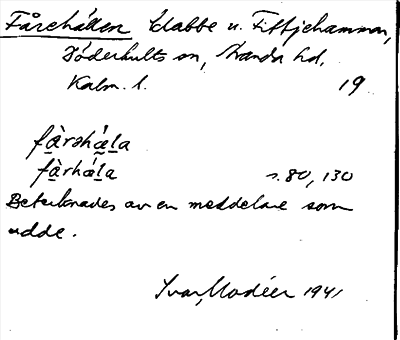 Fårehällen klabbe u. Fittjehammar,
Döderhults sn, Handa hd,
Kalm. l. 19
fàrəhǽla
fàrhǽla s. 80, 130
Betecknades av en meddelare som
udde.
Ivar Modéer 1941